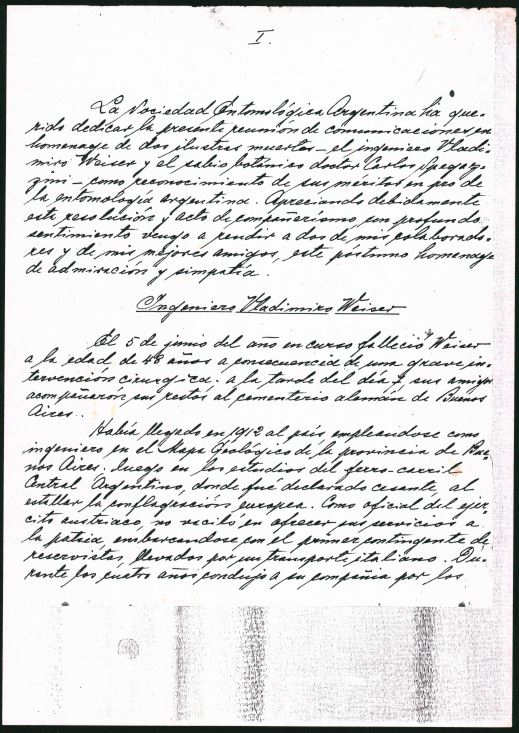 I.
La Sociedad Entomológica Argentina ha que-
rido dedicar la presente reunión de comunicaciones en
homenage de dos ilustras muertos - el ingeniero Vladi-
miro Weiser y el sabio botanico doctor Carlos Spegaz-
zini - como reconocimiento de sus meritos en pro de
la entomologia argentina. Apreciando debidamente
este resolución y acto de compañerismo con profundo
sentimiento vengo a rendir a dos de mis colaborado-
res y de mis mejores amigos, este póstumo homenage
de admiración y simpatía.
Ingeniero Vladimiro Weiser
El 5 de junio del año en curso falleció Weiser
a la edad de 48 años a consecuencia de una grave in-
tervención cirurgica. a la tarde del día sus amigos
acompañaron sus restos al cementerio alemán de Buenos
Aires.
Había llegado en 1912 al país empleandose como
ingeniero en el Mapa Geológico de la provincia de Bue-
nos Aires. luego en los estudios del ferro-carril
Central Argentino, donde fué declarado cesante, al
estallar la conflagración europea. Como oficial del ejer-
cito austriaco, no vaciló en ofrecer sus servicios a
la patria, embarcandose con el primer contingente de
reservistas, llevados por un transporte italiano. Du-
rante los cuatro años condujo a su compañia por los